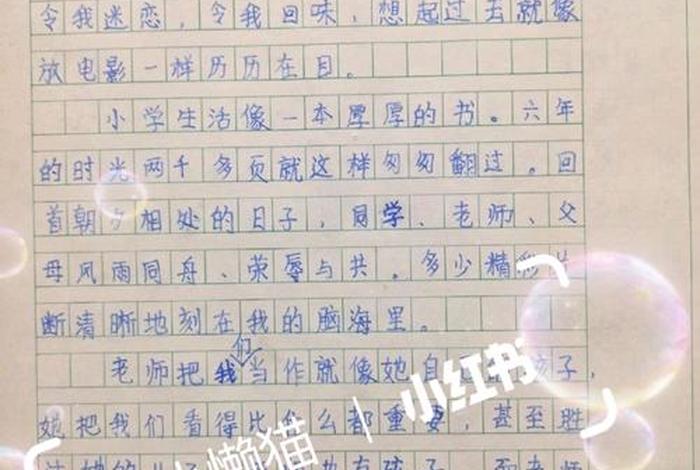 令我迷恋，令我回味，想起过去就像
放电影一样历历在目。
小学生活像一本厚厚的书。六年
的时光两千多页就这样匆匆翻过。回
首朝夕相处的日子，同学、老师、父
母风雨同舟、荣辱与共，多少精彩片
断清晰地刻在我的脑海里。
老师把我们当作就像她自己的孩子，
她把我们看得比什么都重要，甚至胜
过她的
孩子，而老师
小懒猫 | 小红书